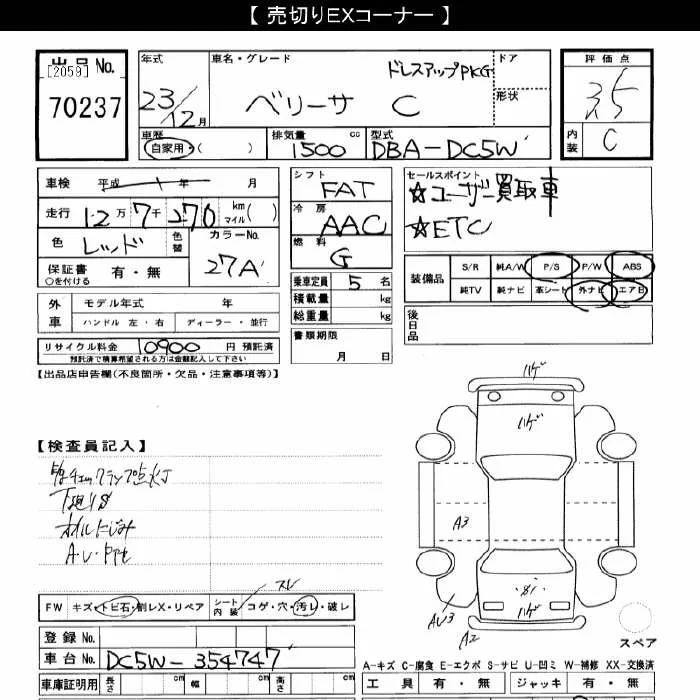 【 売切りEXコーナー 】
出品No.
[2059]
70237
年式
23/12月
車名・グレード
ドレスアップPKG
ベリーサ C
ドア
形状
評価点
3.5
内装
C
車歴
自家用・( )
排気量 cc
1500
型式
DBA-DC5W
車検 平成 年 月
走行 12万 7千 270 km マイル( )
色 レッド
色替
カラーNo.
27A
保証書 有・無
○を付ける
シフト
FAT
冷房
AAC
燃料
G
セールスポイント
☆ユーザー買取車
☆ETC
乗車定員 5 名
積載量 kg
総重量 kg
装備品
S/R 純A/W P/S P/W ABS
純TV 純ナビ 革シート 外ナビ エアB
外車
モデル年式 年
ハンドル 左・右 ディーラー・並行
書類期限
月 日
後日品
リサイクル料金 10900 円 預託済
預託済で精算希望される方は金額記入して下さい
【出品店申告欄(不良箇所・欠品・注意事項等)】
ハゲ
ハゲ
【検査員記入】
下廻りS
オイルにじみ
A3
ハゲ
AU3
A2
スレ
FW キズ・トビ石・割レX・リペア
シート内装 コゲ・穴・汚レ・破レ
スペア
登録No.
車台No. DC5W-354747
A-キズ C-腐食 E-エクボ S-サビ U-凹ミ W-補修 XX-交換済
車庫証明用 長さ cm 幅 cm 高さ cm
工具 有・無 ジャッキ 有・無